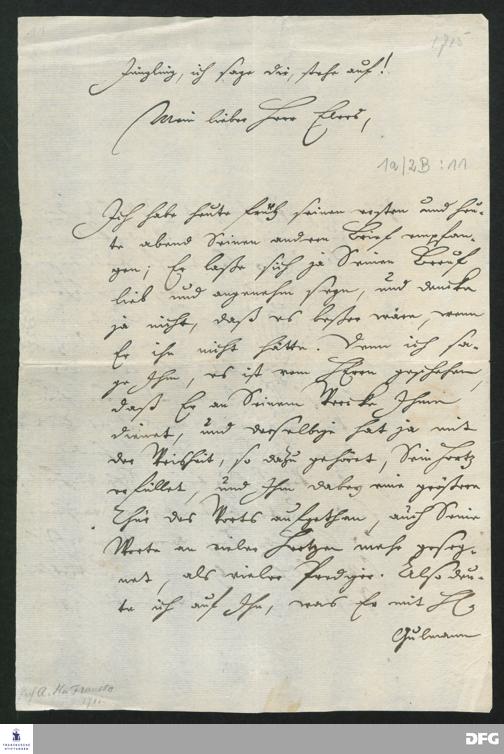 1715
Jüngling, ich sage dir, stehe auf!
Mein lieber Herr Elers,
1a/2B:11
Ich habe heute früh seinen ersten und heu-
te abend Seinen andern Brief empfan-
gen; Er laße sich ja Seinen Beruf
lieb und angenehm seyn, und dencke
ja nicht, daß es beßer wäre, wenn
Er ihn nicht hätte. Denn ich sa-
ge Ihm, es ist vom HErrn geschehen,
daß Er an Seinem Wercke Ihme
dienet, und derselbige hat ja mit
der Weißheit, so dazu gehöret, Sein Hertz
erfüllet, und Ihm dabey eine größere
Thür des Worts aufgethan, auch Seine
Worte an vieler Hertzen mehr geseg-
net, als vieler Prediger. Also deu-
te ich auf Ihn, was Er mit H.
A. H. Francke
FRANCKESCHE
STIFTUNGEN
DFG